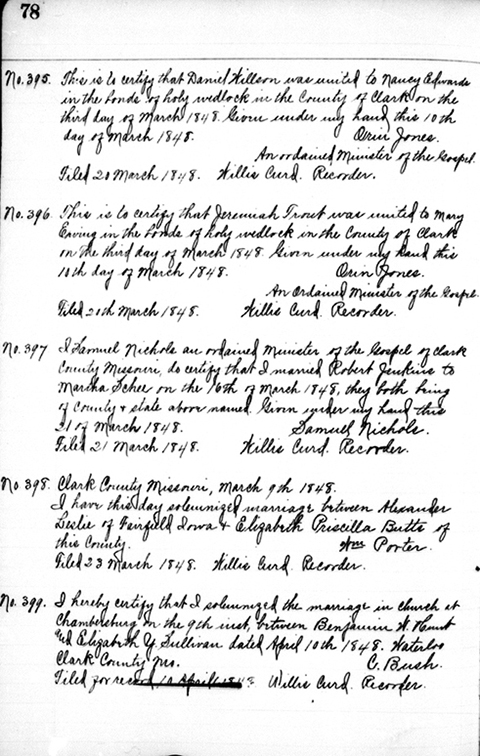 78
No. 395. This is to certify that Daniel Willson was united to Nancy Edwards
in the bonds of holy wedlock in the County of Clark on the
third day of March 1848. Given under my hand this 10th
day of March 1848. Orin Jones.
An ordained Minister of the Gospel.
Filed 20 March 1848. Willis Curd. Recorder.
No. 396. This is to certify that Jeremiah Trout was united to Mary
Erving in the bonds of holy wedlock in the County of Clark
on the third day of March 1848. Given under my hand this
10th day of March 1848. Orin Jones.
An Ordained Minister of the Gospel.
Filed 20th March 1848. Willis Curd. Recorder.
No. 397 I Samuel Nichols an ordained Minister of the Gospel of Clark
County Missouri, do certify that I married Robert Jenkins to
Martha Schee on the 16th of March 1848, they both being
of County & state above named. Given under my hand this
21 of March 1848. Samuel Nichols.
Filed 21 March 1848. Willis Curd. Recorder.
No 398. Clark County Missouri, March 9th 1848.
I have this day solemnized marriage between Alexander
Leslie of Fairfield Iowa & Elizabeth Priscilla Butts of
this County. Wm Porter.
Filed 23 March 1848. Willis Curd. Recorder.
No. 399. I hereby certify that I solemnized the marriage in church at
Chambersburg on the 9th inst, between Benjamin W. Hunt
Elizabeth Y. Sullivan dated April 10th 1848. Waterloo
Clark County Mo. C. Bush.
Filed for record 10 April 1848 Willis Curd. Recorder.